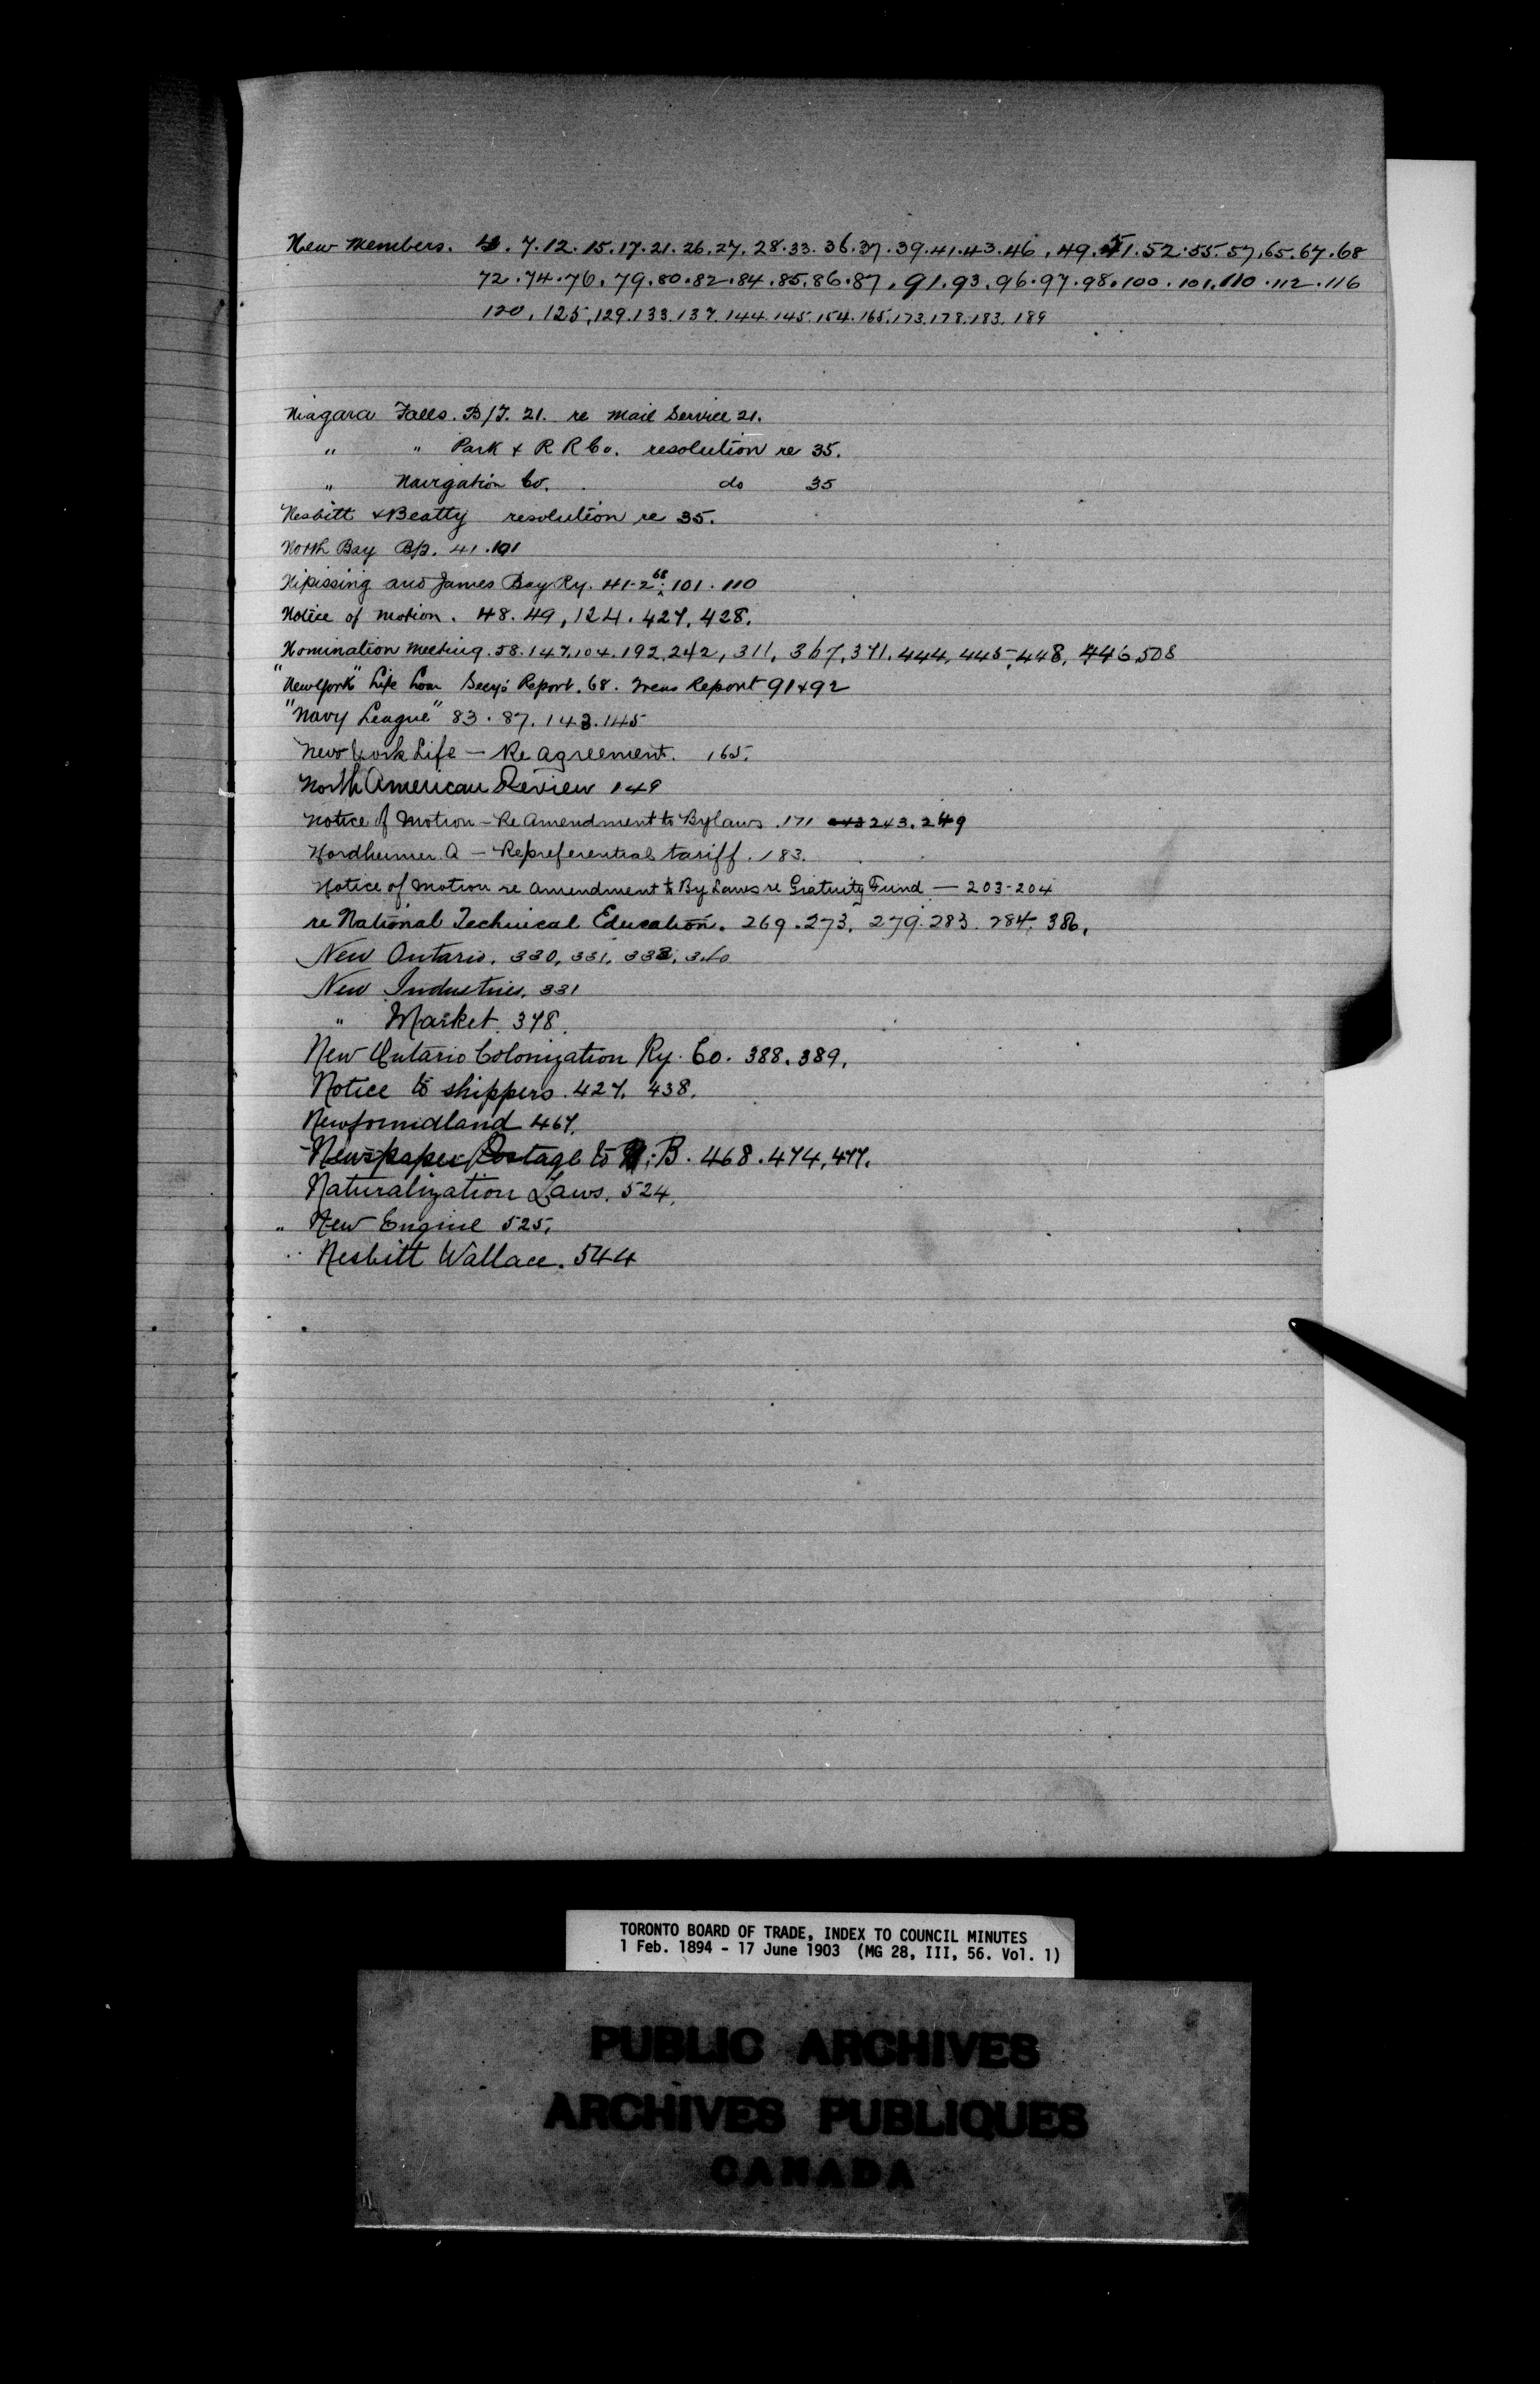 New Members. 4. 7. 12. 15. 17. 21. 26. 27. 28. 33. 36. 37. 39. 41. 43. 46, 49. 51. 52. 55. 57. 65. 67. 68
72. 74. 76. 79. 80. 82. 84. 85. 86. 87. 91. 93. 96. 97. 98. 100. 101. 110. 112. 116
120, 125, 129. 133. 137. 144. 145. 154. 165. 173. 178. 183. 189
Niagara Falls. B/T. 21. re Mail Service 21.
" " Park & R R Co. resolution re 35.
" Navigation Co. do 35
Nesbitt & Beatty resolution re 35.
North Bay 41. 101
Nipissing and James Bay Ry. 41-2 68 101. 110
Notice of Motion. 48. 49, 124. 427, 428.
Nomination Meeting. 58. 147. 104. 192. 242, 311, 367, 371. 444, 445, 448, 446, 508
"New York" Life Loan Secy's Report. 68. Treas Report 91 & 92
"Navy League" 83. 87. 143. 145
New York Life — Re Agreement. 165.
North American Review 149
Notice of Motion - Re Amendment to Bylaws. 171 243. 249
Nordheimer A — Re preferential tariff. 183.
Notice of Motion re Amendment to By Laws re Gratuity Fund — 203-204
re National Technical Education. 269. 273. 279. 283. 284. 386.
New Ontario. 330, 331, 338, 340
New Industries. 331
" Market. 378.
New Ontario Colonization Ry. Co. 388. 389.
Notice to shippers. 427. 438.
Newfoundland 467.
Newspaper Postage to B. 468. 474, 477.
Naturalization Laws. 524.
" New Engine 525.
Nesbitt Wallace. 544
TORONTO BOARD OF TRADE, INDEX TO COUNCIL MINUTES
1 Feb. 1894 - 17 June 1903 (MG 28, III, 56. Vol. 1)
PUBLIC ARCHIVES
ARCHIVES PUBLIQUES
CANADA